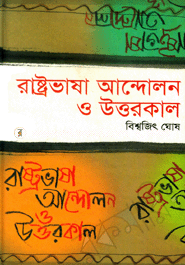 রাষ্ট্রভাষা আন্দোলন
ও উত্তরকাল
বিশ্বজিৎ ঘোষ
রাষ্ট্রভাষা
আন্দোলন
ও
উত্তরকাল
রাষ্ট্রভাষা